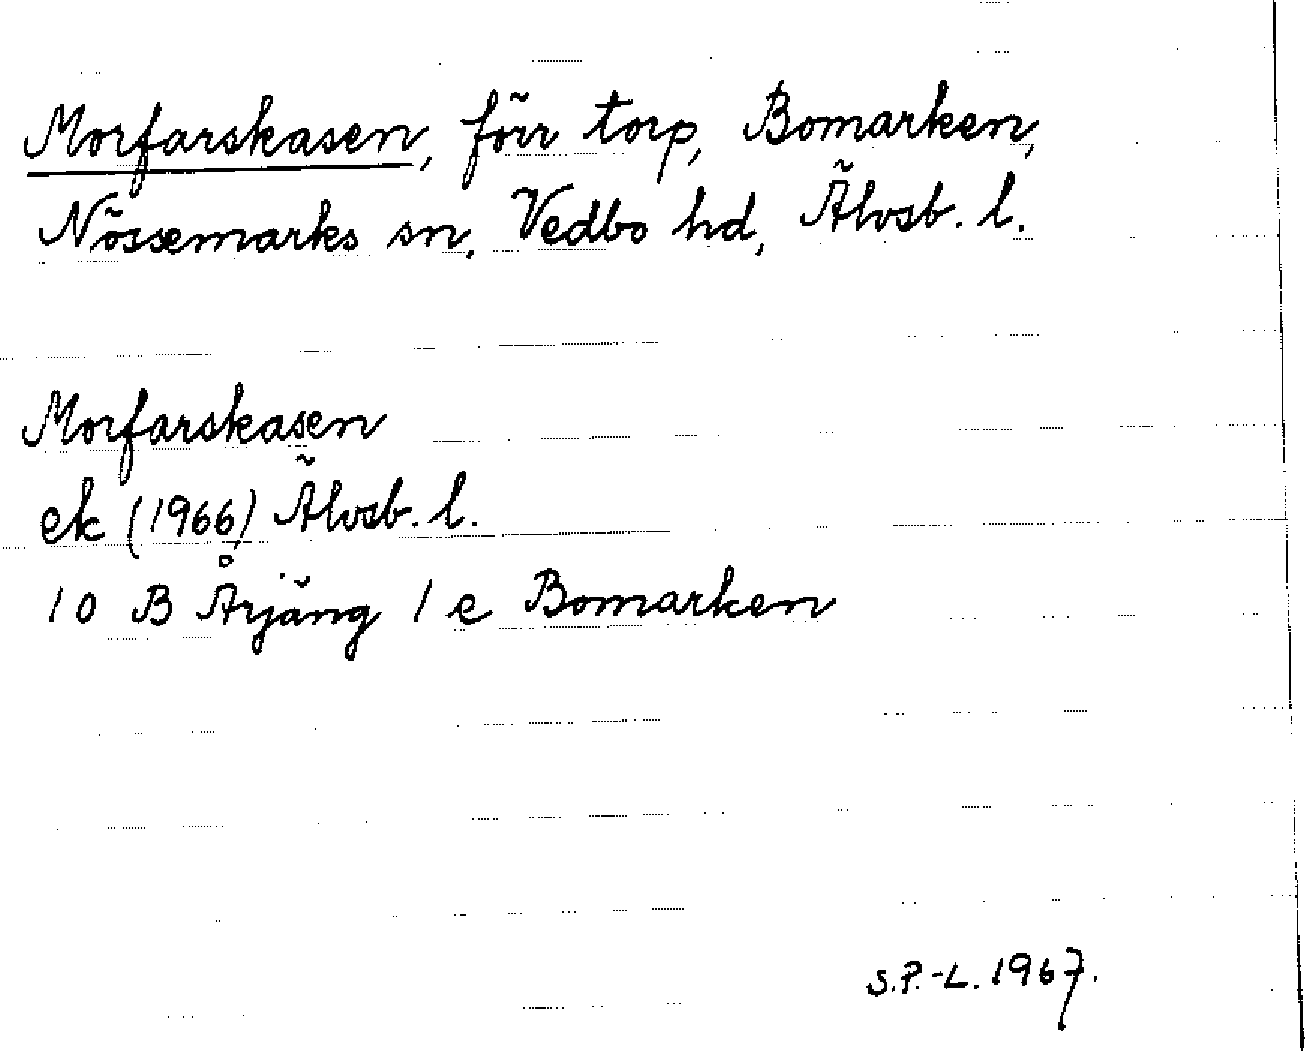 Morfarskasen, förr torp, Bomarken,
Nössemarks sn, Vedbo hd, Älvsb. l.
Morfarskasen
ek (1966) Älvsb. l.
10 B Årjäng 1 e Bomarken
S.P.-L. 1967.